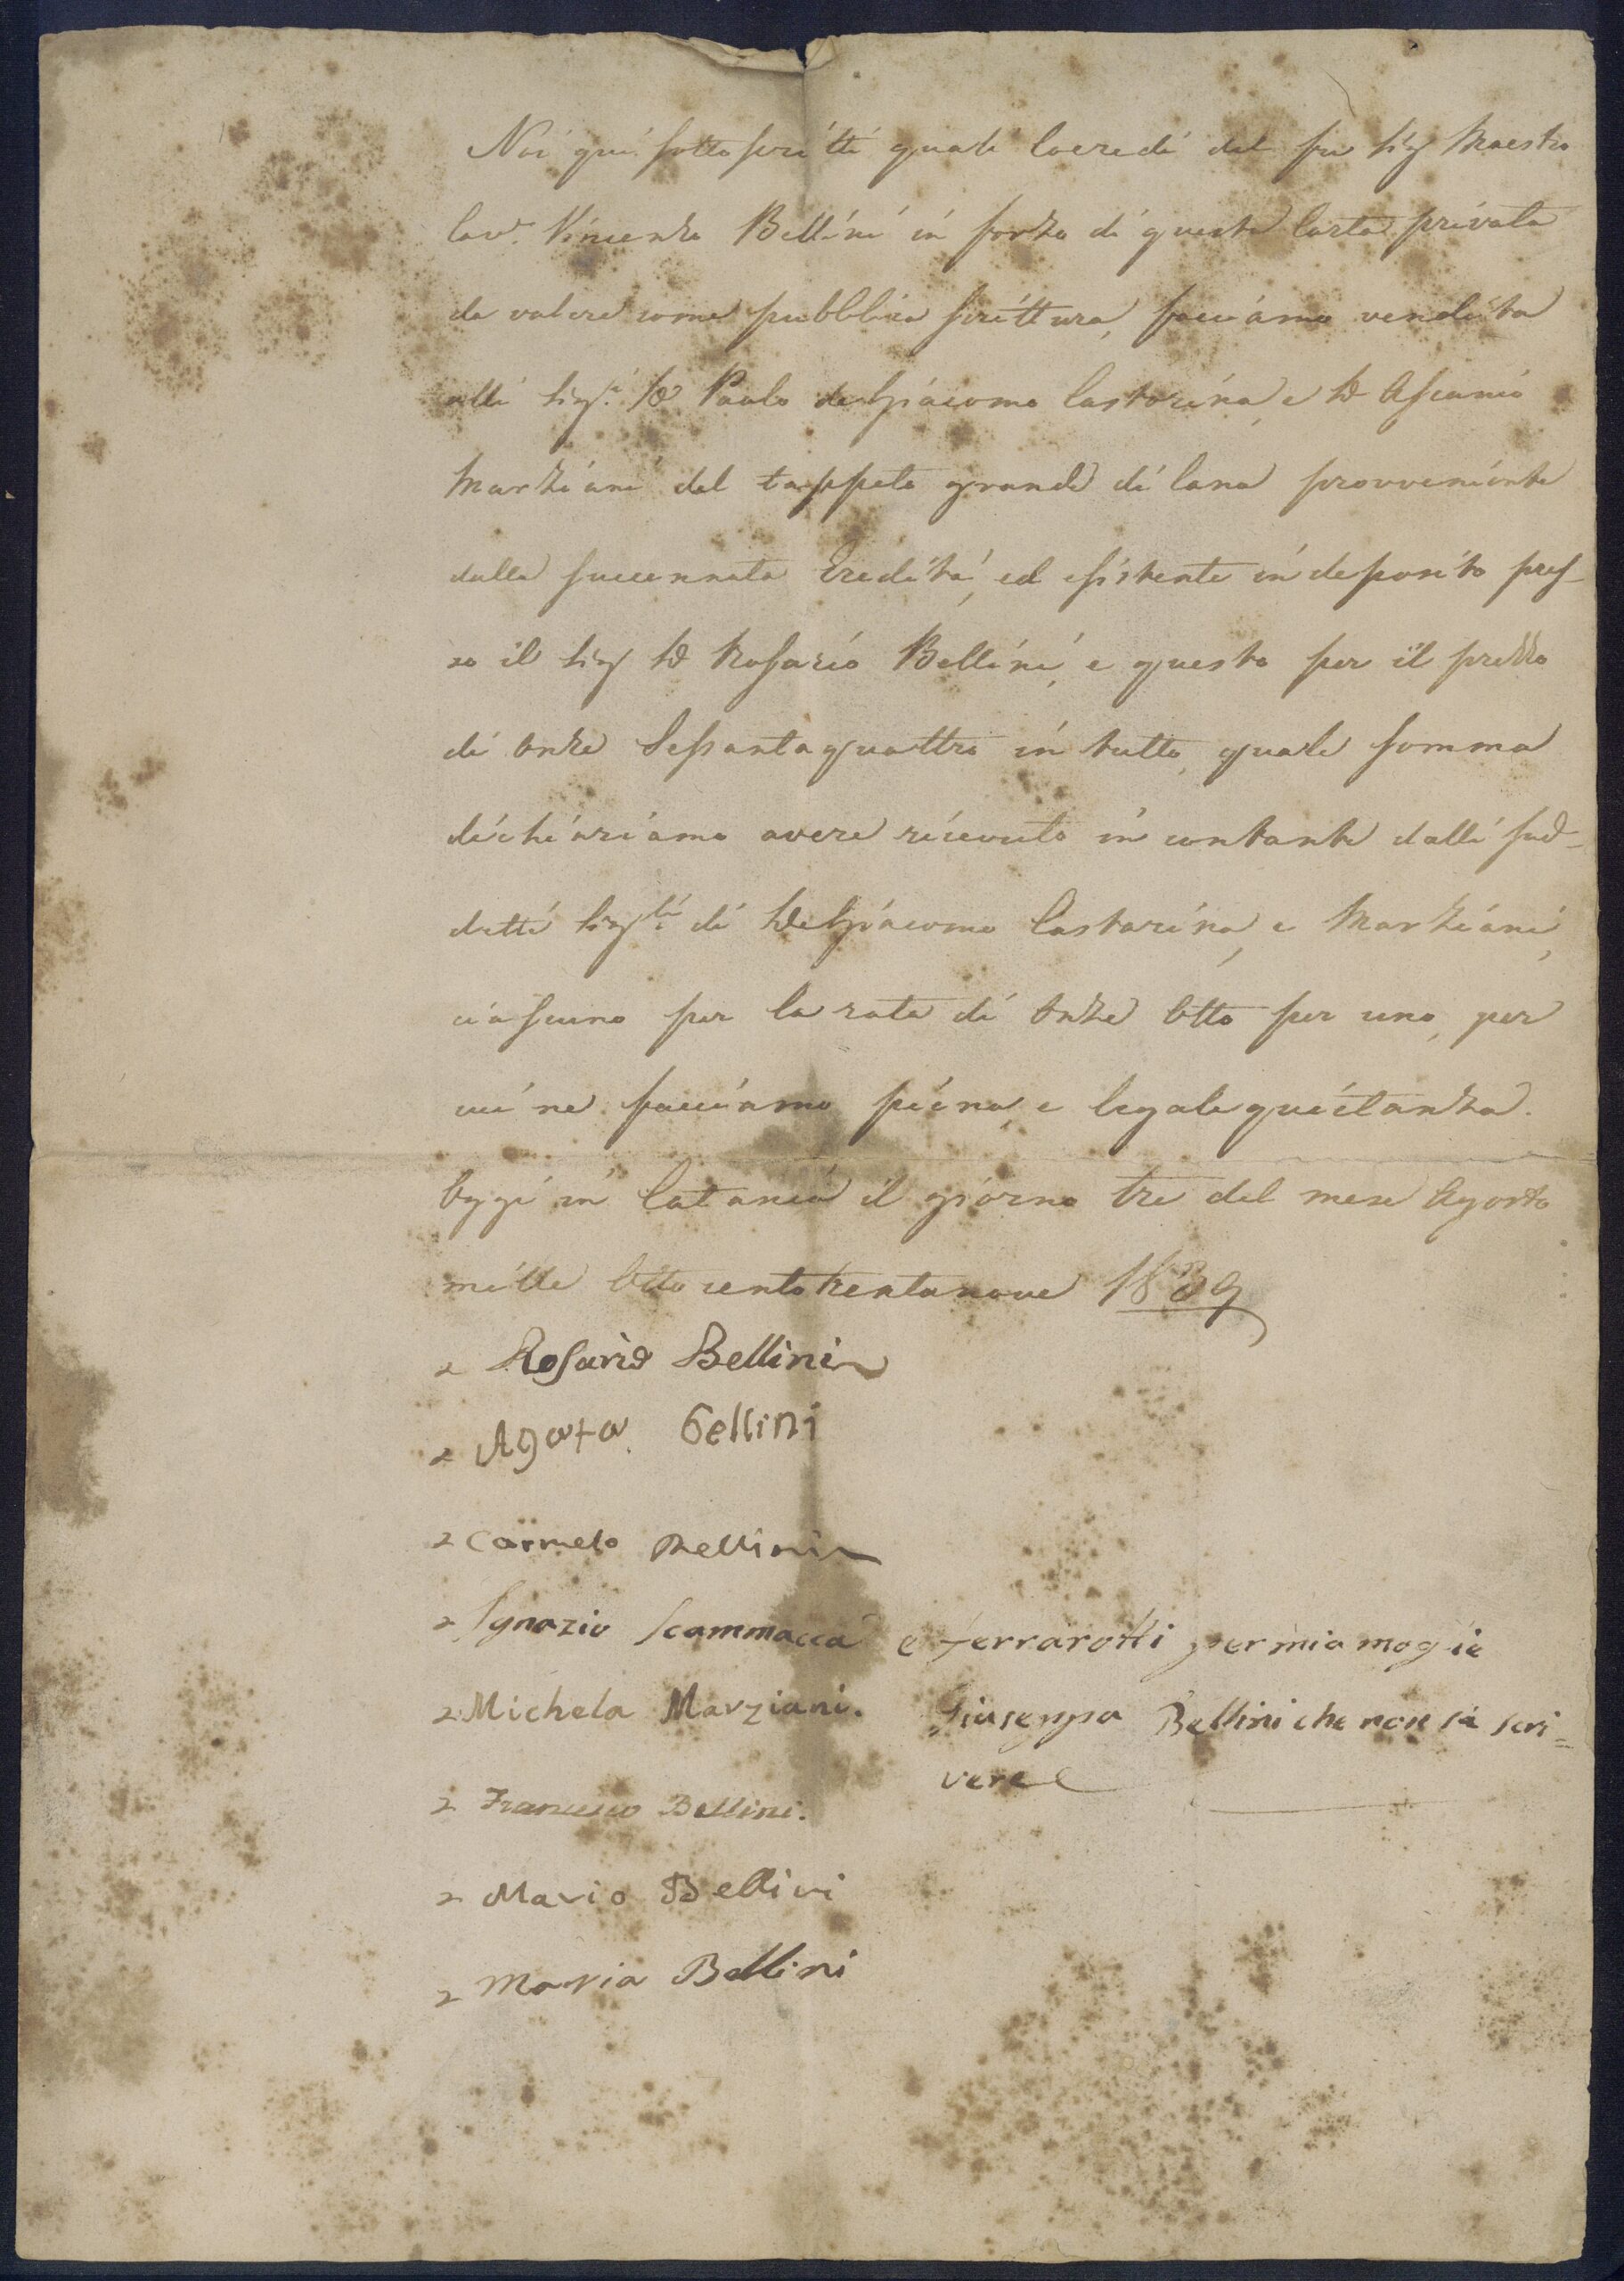 Noi quì sottoscritti quali Coeredi del fu Sig Maestro
Cav.r Vincenzo Bellini in forza di questa Carta privata
da valere come pubblica scrittura, facciamo vendita
alli Sig.i Dn Paolo de Giacomo Castorina, e Dn Ascanio
Marziani del tappeto grande di lana provveniente
dalla succennata Eredità, ed esistente in deposito pres-
so il Sig Dn Rosario Bellini, e questo per il prezzo
di Onze Sessantaquattro in tutto, quale somma
dichiariamo avere ricevuto in contante dalli sud-
detti Sig.ri di De Giacomo Castorina, e Marziani,
ciascuno per la rata di Onze Otto per uno, per
cui ne facciamo piena, e legale quietanza.
Oggi in Catania il giorno tre del mese Agosto
mille Ottocentotrentanove 1839
Rosario Bellini
Agata Bellini
Carmelo Bellini
Ignazio Scammacca e Ferrarotti per mia moglie
Giuseppa Bellini che non sà scri=
vere
Michela Marziani.
Francesco Bellini.
Mario Bellini
Maria Bellini